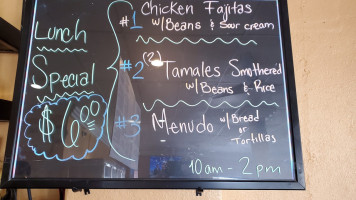 Lunch
Special
$6.00
#1 Chicken Fajitas
w/Beans & Sour cream
#2 (2) Tamales Smothered
w/Beans & Rice
#3 Menudo w/Bread
or
Tortillas
10am - 2pm